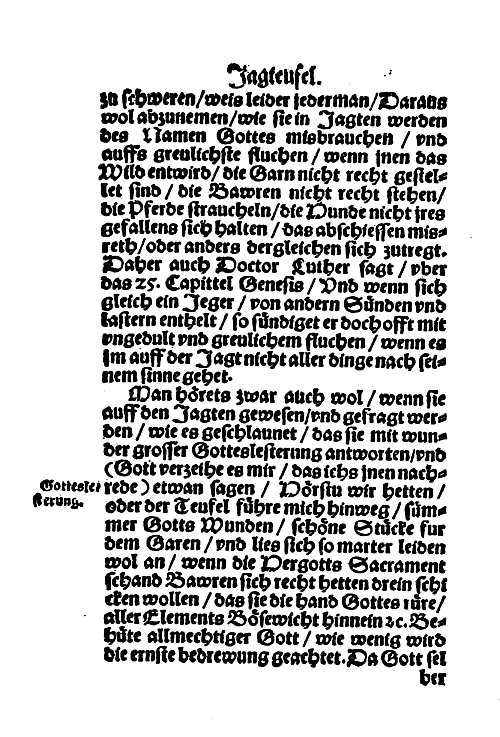 Jagteufel.
zu schweren/weis leider jederman/Daraus
wol abzunemen/wie sie in Jagten werden
des Namen Gottes misbrauchen / vnd
auffs greulichste fluchen / wenn jnen das
Wild entwird/ die Garn nicht recht gestel⸗
let sind / die Bawren nicht recht stehen/
die Pferde straucheln/die Hunde nicht jres
gefallens sich halten / das abschiessen mis⸗
reth/oder anders dergleichen sich zutregt.
Daher auch Doctor Luther sagt / vber
das 25. Capittel Genesis / Vnd wenn sich
gleich ein Jeger / von andern Sünden vnd
lastern enthelt / so sündiget er doch offt mit
vngedult vnd greulichem fluchen / wenn es
jm auff der Jagt nicht aller dinge nach sei⸗
nem sinne gehet.
Man hörets zwar auch wol / wenn sie
auff den Jagten gewesen/vnd gefragt wer⸗
den / wie es geschlaunet / das sie mit wun⸗
der grosser Gotteslesterung antworten/vnd
(Gott verzeihe es mir / das ichs jnen nach⸗
Gotteslei
sterung.
rede) etwan sagen / Hörstu wir hetten /
oder der Teufel führe mich hinweg / süm⸗
mer Gotts Wunden / schöne Stücke fur
dem Garen / vnd lies sich so marter leiden
wol an / wenn die Hergotts Sacrament
schand Bawren sich recht hetten drein schi
cken wollen / das sie die hand Gottes rüre/
aller Elements Bösewicht hinnein ꝛc. Be⸗
hüte allmechtiger Gott / wie wenig wird
die ernste bedrewung geachtet. Da Gott sel
ber